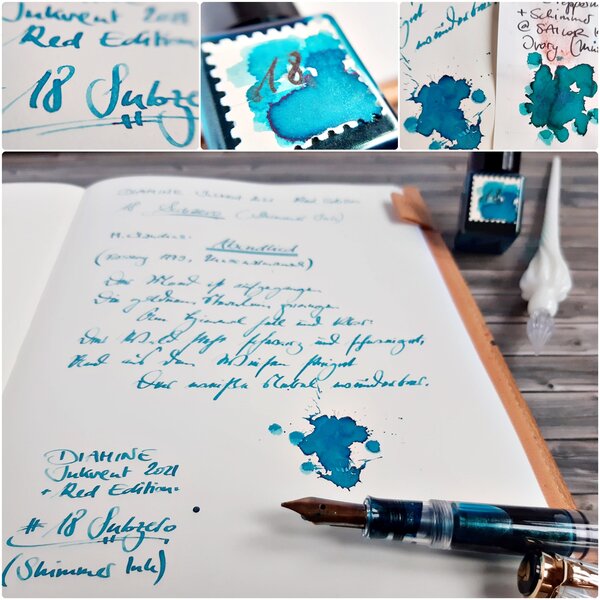 Inkvent 2021
Red Edition
#18 Subzero
18.
wunderbar
+ Schimmer
@ SAILOR
Ivory
DIAMINE Inkvent 2021 Red Edition
18 Subzero (Shimmer Ink)
M. Claudius: Abendlied
Der Mond ist aufgegangen
Die goldnen Sternlein prangen
Am Himmel hell und klar.
Der Wald steht schwarz und schweiget,
Und aus den Wiesen steiget
Der weiße Nebel wunderbar.
DIAMINE
Inkvent 2021
- Red Edition -
#18 Subzero
(Shimmer Ink)